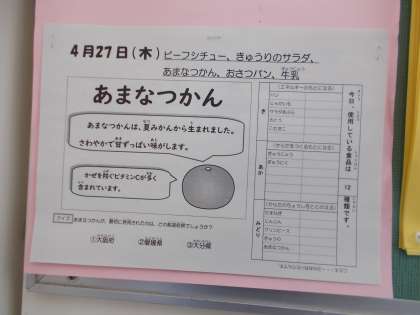 4月27日(木) ビーフシチュー、きゅうりのサラダ、
あまなつかん、おさつパン、牛乳
あまなつかん
あまなつかんは、夏みかんから生まれました。
さわやかで甘ずっぱい味がします。
かぜを防ぐビタミンCが多く
含まれています。
クイズ
あまなつかんが、最初に発見されたのは、どの都道府県でしょうか?
①大阪府 ②愛媛県 ③大分県
今日、使用している食品は 12 種類です。
き
(エネルギーのもとになる)
パン
じゃがいも
サラダあぶら
さとう
こむぎこ
あか
(からだをつくるもとになる)
ぎゅうにゅう
ぎゅうにく
みどり
(からだのちょうしをととのえる)
たまねぎ
にんじん
グリンピース
きゅうり
あまなつかん